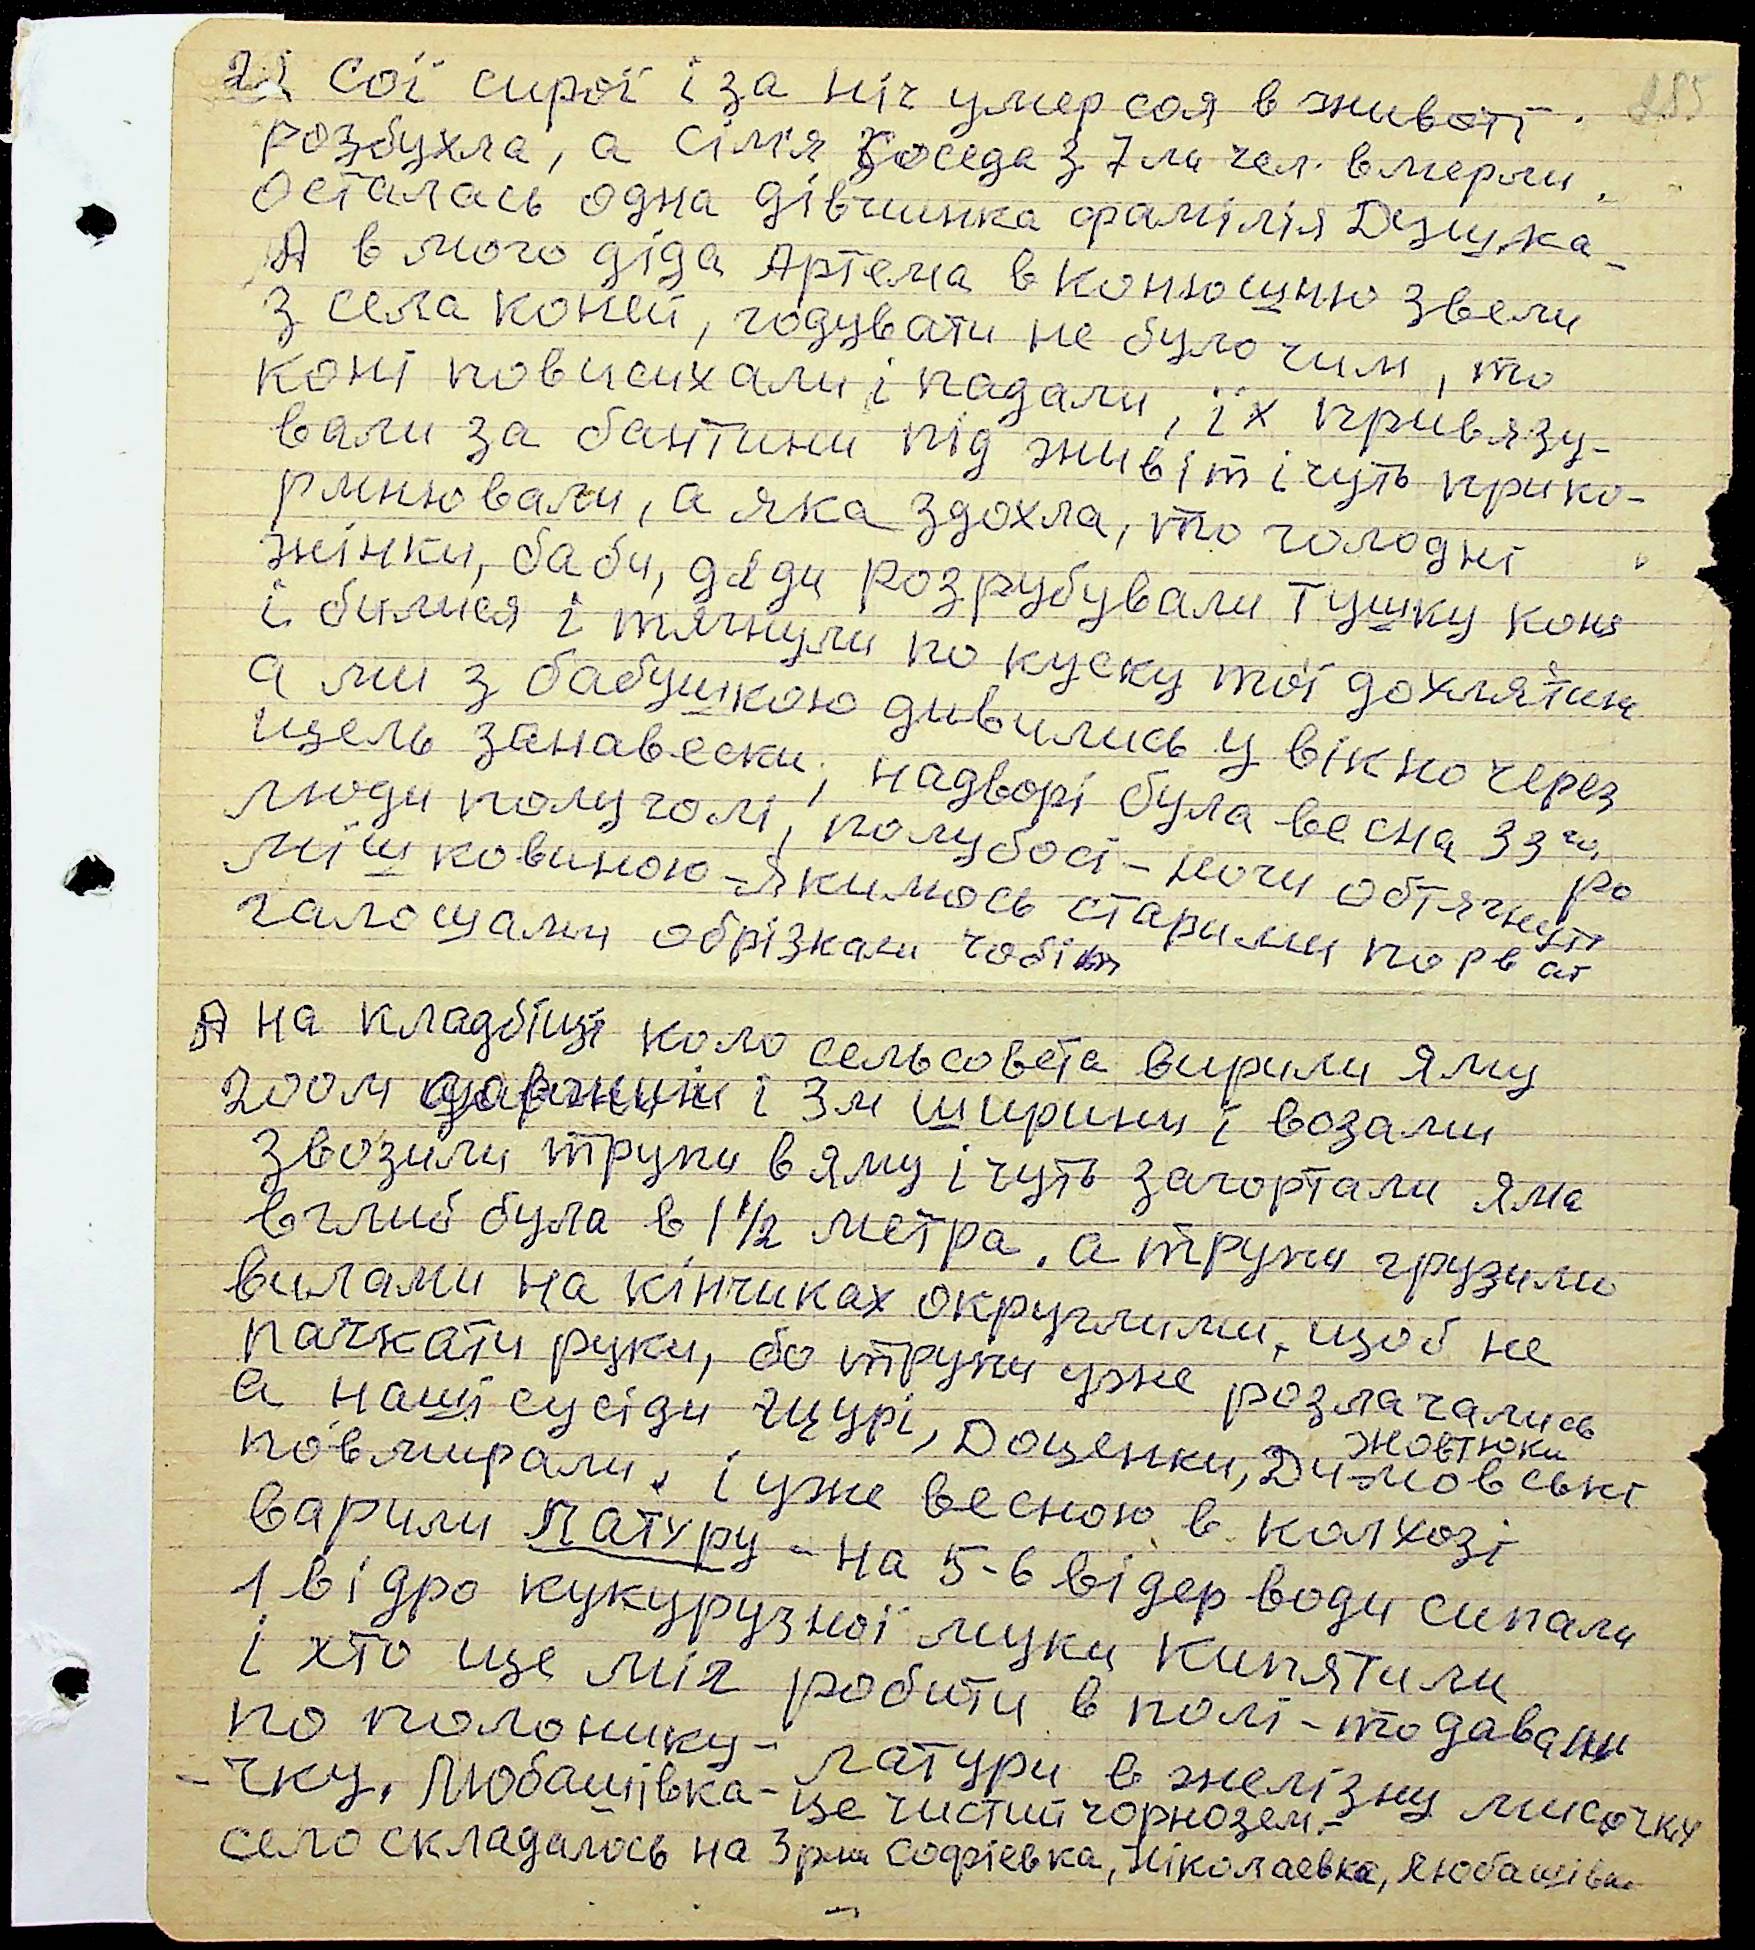 2 сої сирої і за ніч умер соя в животі.
розбухла, а сімя Коседа з 7ми чел. вмерли.
осталась одна дівчинка фамілія Дзюжка
А в мого діда Артема в конюшню звели
з села коней, годувати не було чим, то
коні повисихали і падали, їх привязу-
вали за бантини під живіт і чуть прико-
рмнювали, а яка здохла, то голодні
жінки, баби, дяди розрубували тушку коня
і билися і тягнули по куску тої дохлятини
а ми з бабушкою дивились у вікно через
щель занавески, надворі була весна 33 го.
люди полуголі, полубосі - ноги обтягнуті ро
мішковиною - якимось старими порват
галошами обрізками чобіт
А на кладбіщі коло сельсовета вирили яму
200м довжини і 3м ширини і возами
звозили трупи в яму і чуть загортали яма
вглиб була в 1 1/2 метра. а трупи грузили
вилами на кінчиках округлими, щоб не
пачкати руки, бо трупи уже розлагались
а наші сусіди Щурі, Доценки, Димовські
жовтюки
повмирали. і уже весною в колхозі
варили латуру - на 5-6 відер води сипали
1 відро кукурузної муки кипятили
і хто ще міг робити в полі - то давали
по полонику - латури в желізну мисочку
- чку. Любашівка - це чистий чорнозем. -
село складалось на 3 Софіевка, Ніколаевка, Любашівка